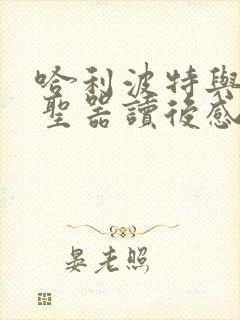 哈利波特與
聖器讀後感
晏老照